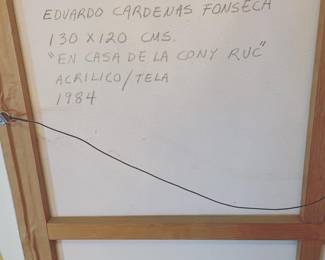 EDUARDO CARDENAS FONSECA
130 X 120 CMS.
"EN CASA DE LA CONY RUC"
ACRILICO/TELA
1984